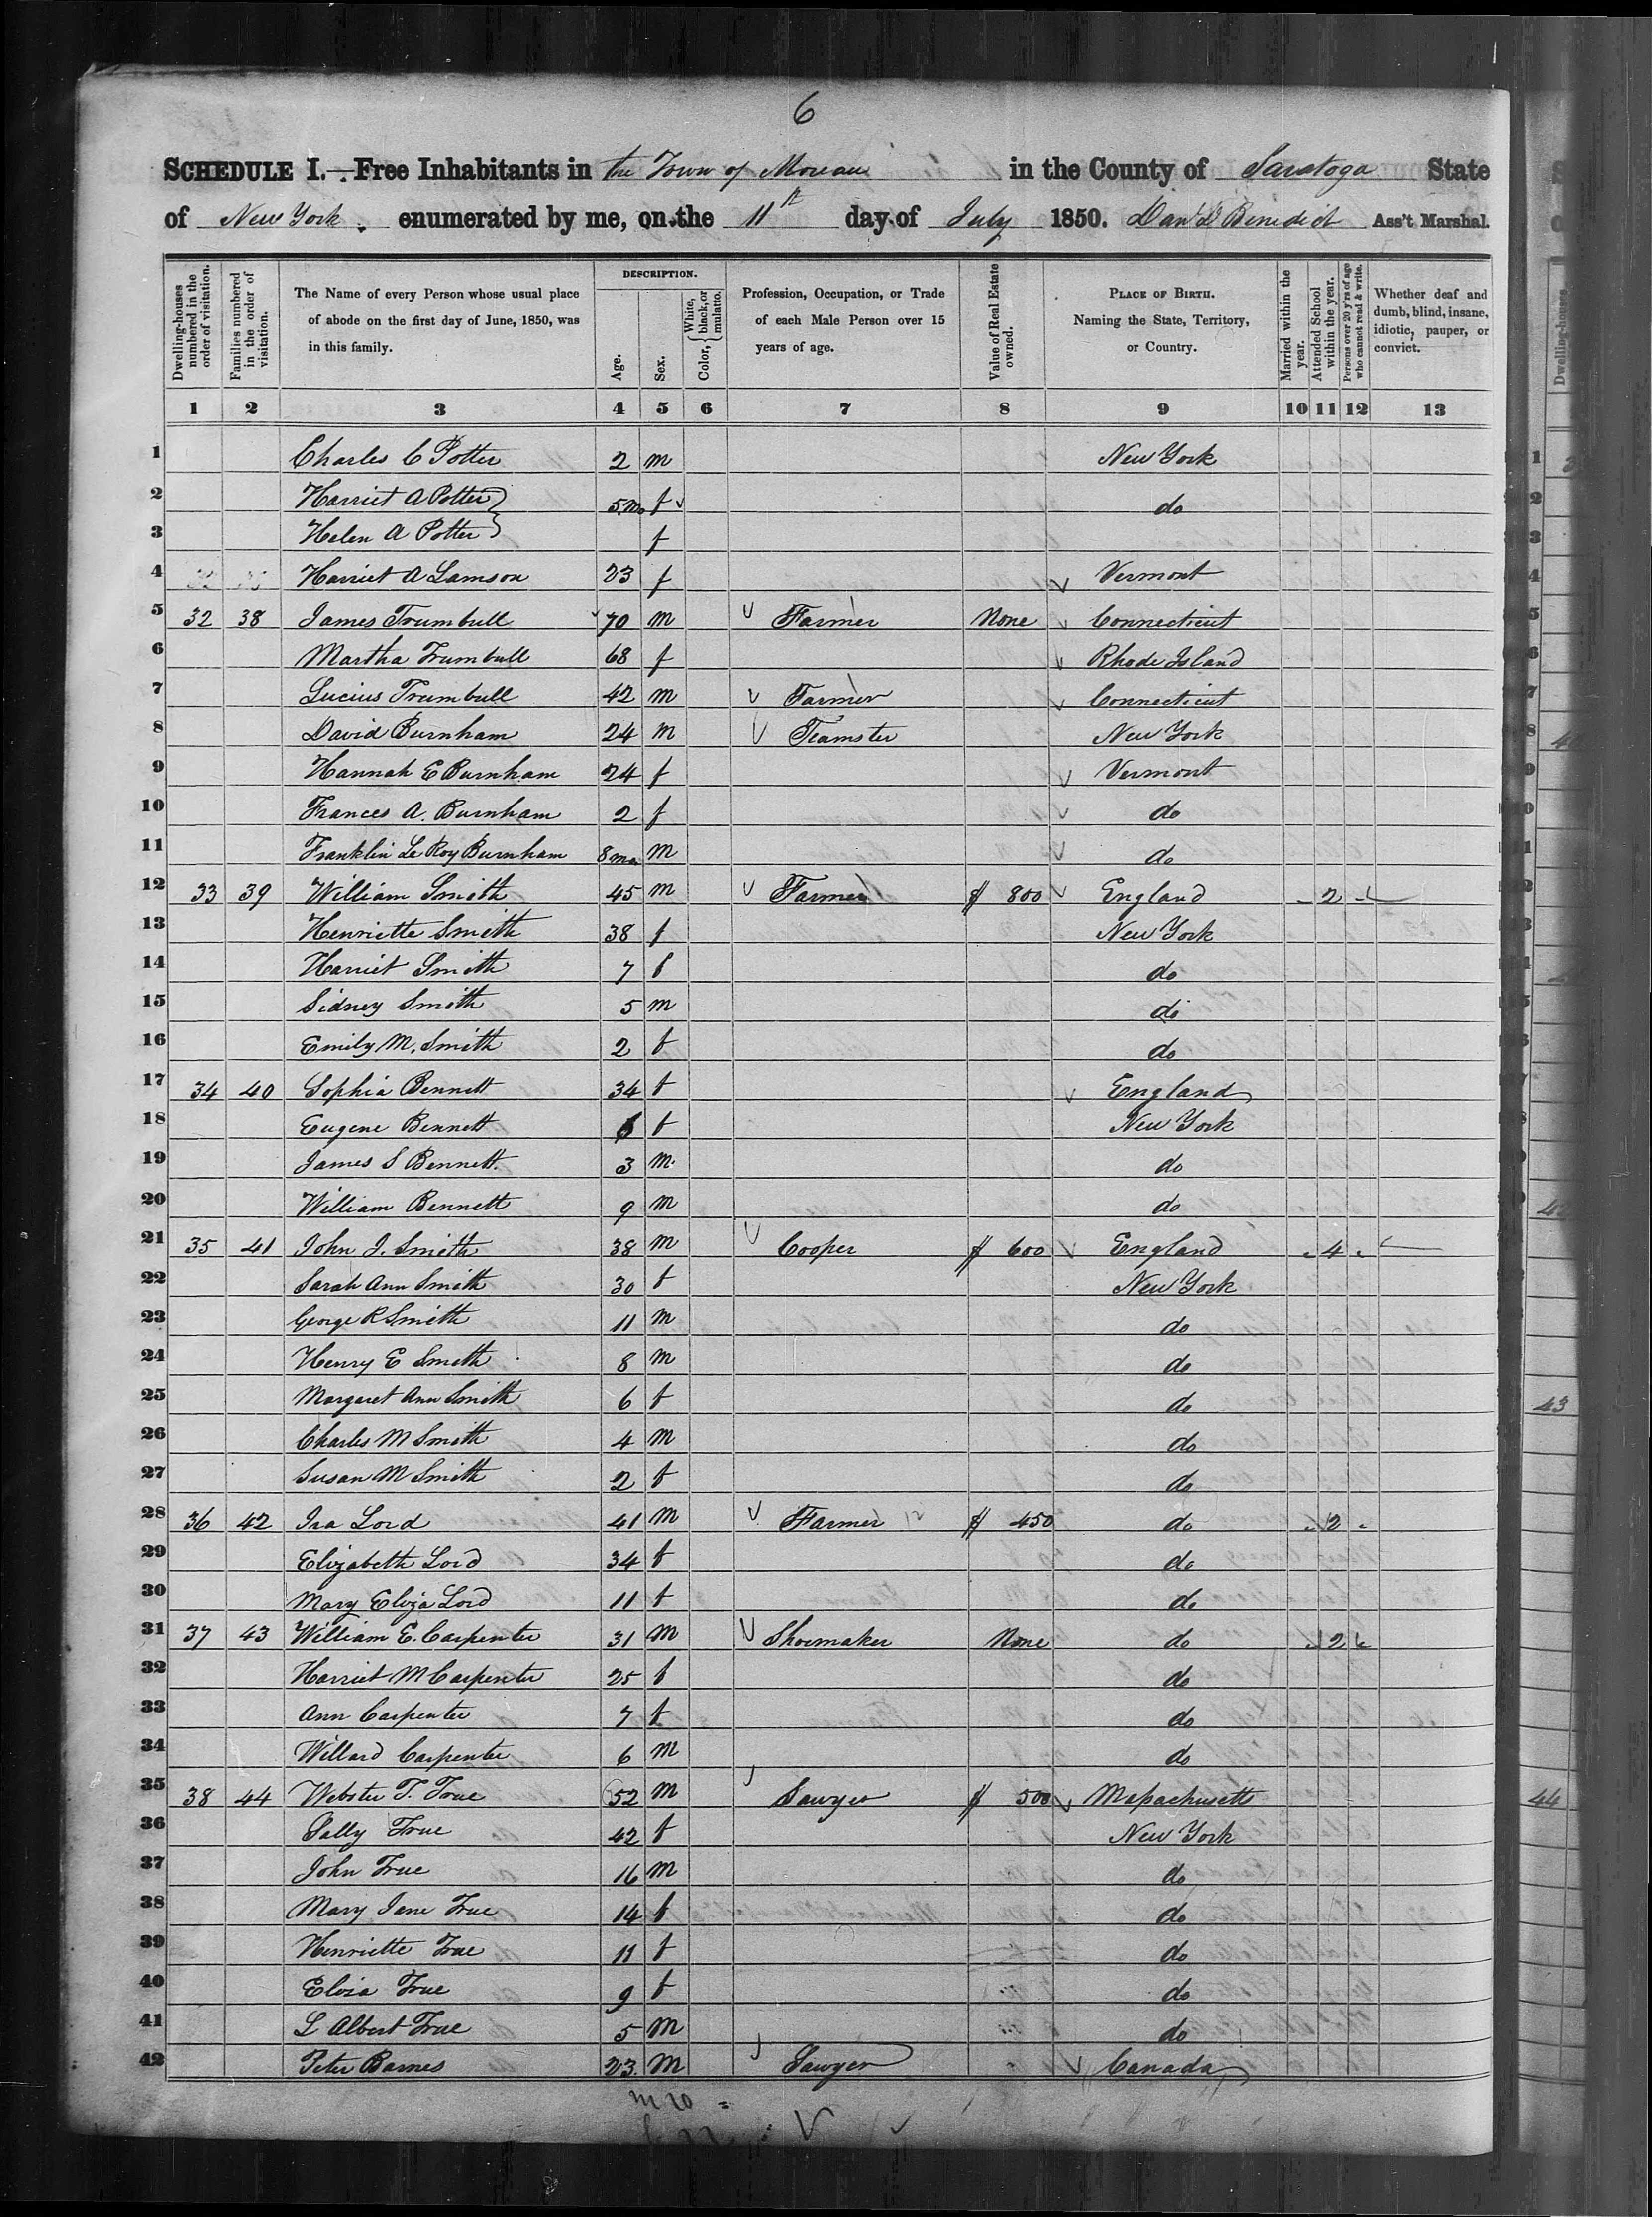 6
SCHEDULE I.—Free Inhabitants in the Town of Moreau in the County of Saratoga State
of New York enumerated by me, on the 11th day of July 1850. Danl D Benedict Ass't Marshal.
Dwelling-houses numbered in the order of visitation.
Families numbered in the order of visitation.
The Name of every Person whose usual place of abode on the first day of June, 1850, was in this family.
DESCRIPTION.
Age.
Sex.
Color, { White, black, or mulatto.
Profession, Occupation, or Trade of each Male Person over 15 years of age.
Value of Real Estate owned.
PLACE OF BIRTH.
Naming the State, Territory, or Country.
Married within the year.
Attended School within the year.
Persons over 20 y'rs of age who cannot read & write.
Whether deaf and dumb, blind, insane, idiotic, pauper, or convict.
1 2 3 4 5 6 7 8 9 10 11 12 13
1 Charles C Potter 2 m New York
2 Harriet A Potter 5mo f do
3 Helen A Potter f
4 Harriet A Lamson 23 f Vermont
5 32 38 James Trumbull 70 m Farmer None Connecticut
6 Martha Trumbull 68 f Rhode Island
7 Lucius Trumbull 42 m Farmer Connecticut
8 David Burnham 24 m Teamster New York
9 Hannah E Burnham 24 f Vermont
10 Frances A. Burnham 2 f do
11 Franklin Le Roy Burnham 8mo m do
12 33 39 William Smith 45 m Farmer $ 800 England 2
13 Henriette Smith 38 f New York
14 Harriet Smith 7 f do
15 Sidney Smith 5 m do
16 Emily M. Smith 2 f do
17 34 40 Sophia Bennett 34 f England
18 Eugene Bennett f New York
19 James S Bennett. 3 m. do
20 William Bennett 9 m do
21 35 41 John J. Smith 38 m Cooper $ 600 England 4
22 Sarah Ann Smith 30 f New York
23 George R Smith 11 m do
24 Henry E Smith 8 m do
25 Margaret Ann Smith 6 f do
26 Charles M Smith 4 m do
27 Susan M Smith 2 f do
28 36 42 Ira Lord 41 m Farmer $ 450 do 2
29 Elizabeth Lord 34 f do
30 Mary Eliza Lord 11 f do
31 37 43 William E. Carpenter 31 m Shoemaker None do 2
32 Harriet M Carpenter 25 f do
33 Ann Carpenter 7 f do
34 Willard Carpenter 6 m do
35 38 44 Webster T. True 52 m Sawyer $ 500 Massachusetts
36 Sally True 42 f New York
37 John True 16 m do
38 Mary Jane True 14 f do
39 Henriette True 11 f do
40 Eliza True 9 f do
41 L Albert True 5 m do
42 Peter Barnes 23. m Sawyer Canada
m 20